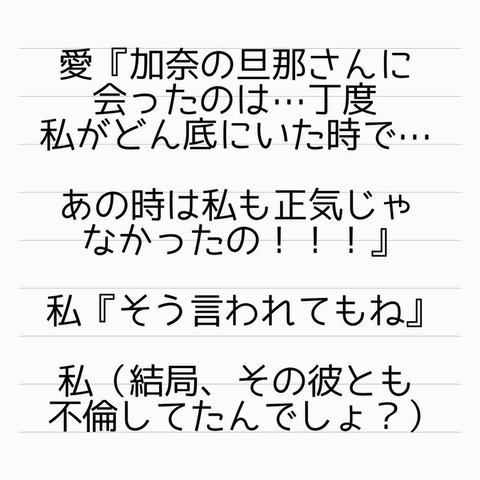 愛『加奈の旦那さんに
会ったのは…丁度
私がどん底にいた時で…
あの時は私も正気じゃ
なかったの！！！』
私『そう言われてもね』
私（結局、その彼とも
不倫してたんでしょ？）